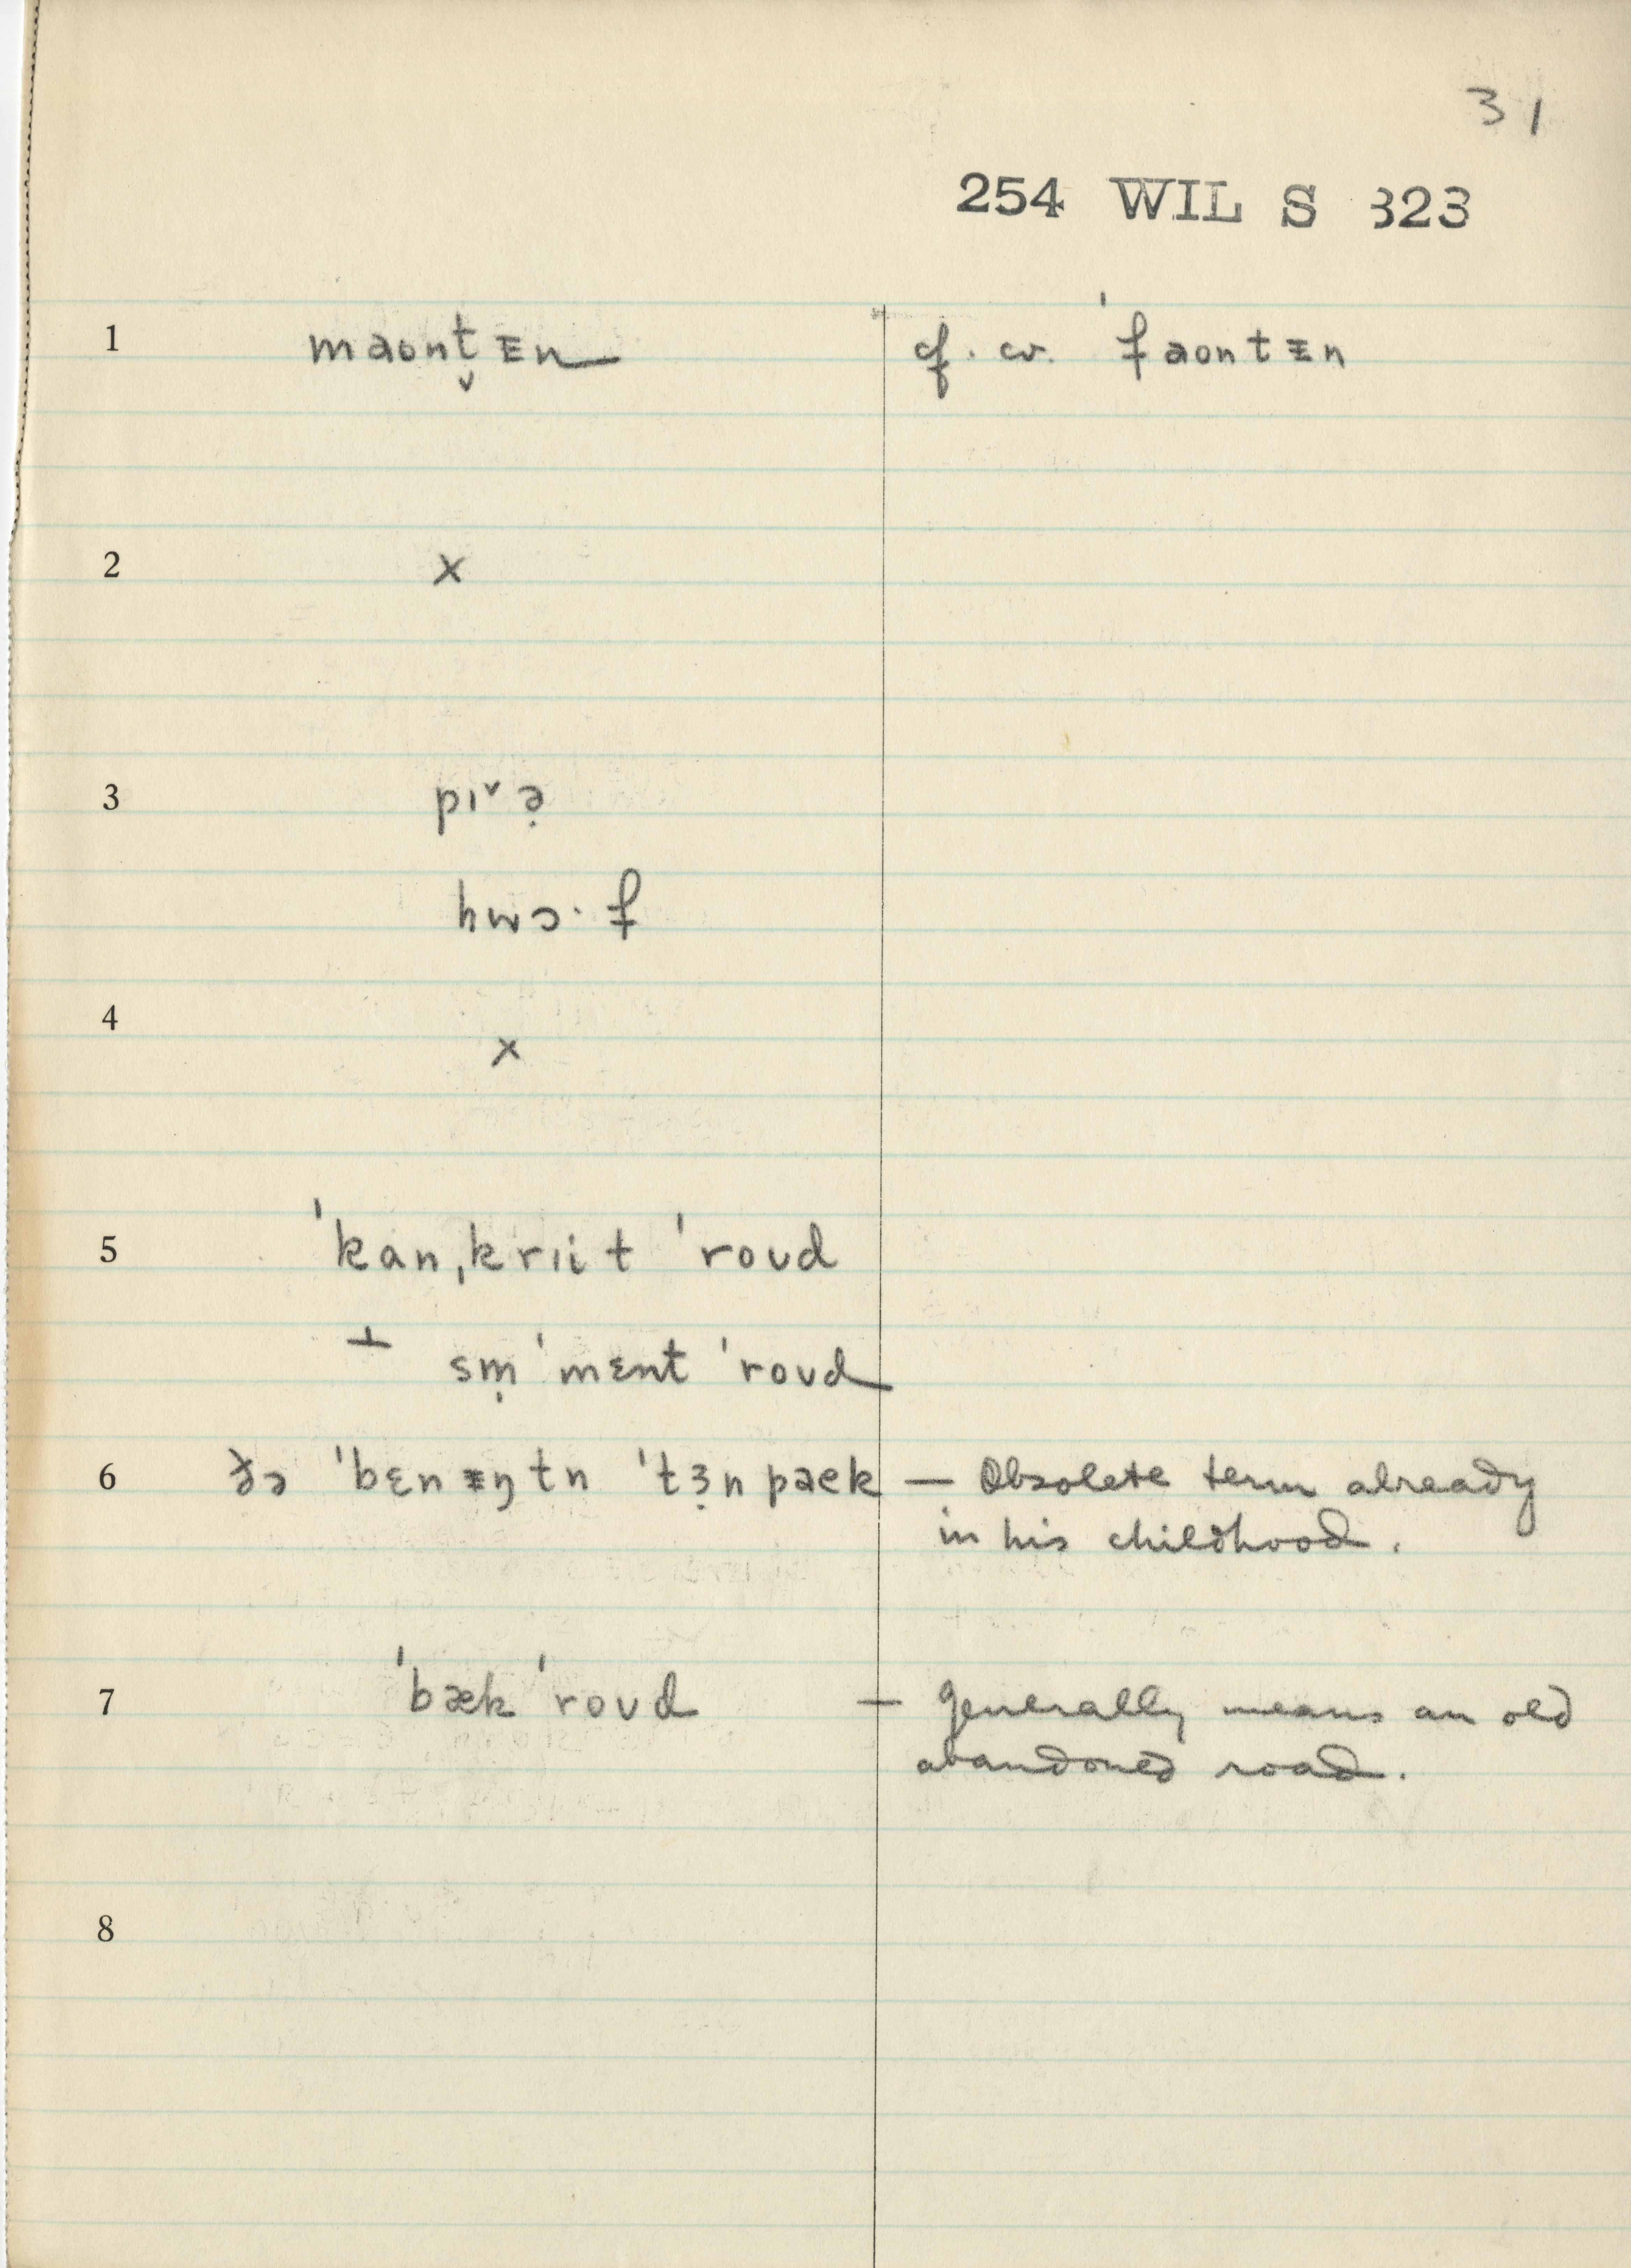 31
254 WIL S 323
1 maont̬ᵻn cf. cv. ˈfaontᵻn
2 x
3 pɪˇə̣
hwɔ·f
4 x
5 ˈkanˌkrɪit ˈroʊd
⊥ sm̩ ˈmɛnt ˈroʊd
6 ðə ˈbɛnᵻŋtn ˈtɜ̣npaek — Obsolete term already
in his childhood.
7 ˈbæk ˈroʊd — generally means an old
abandoned road.
8